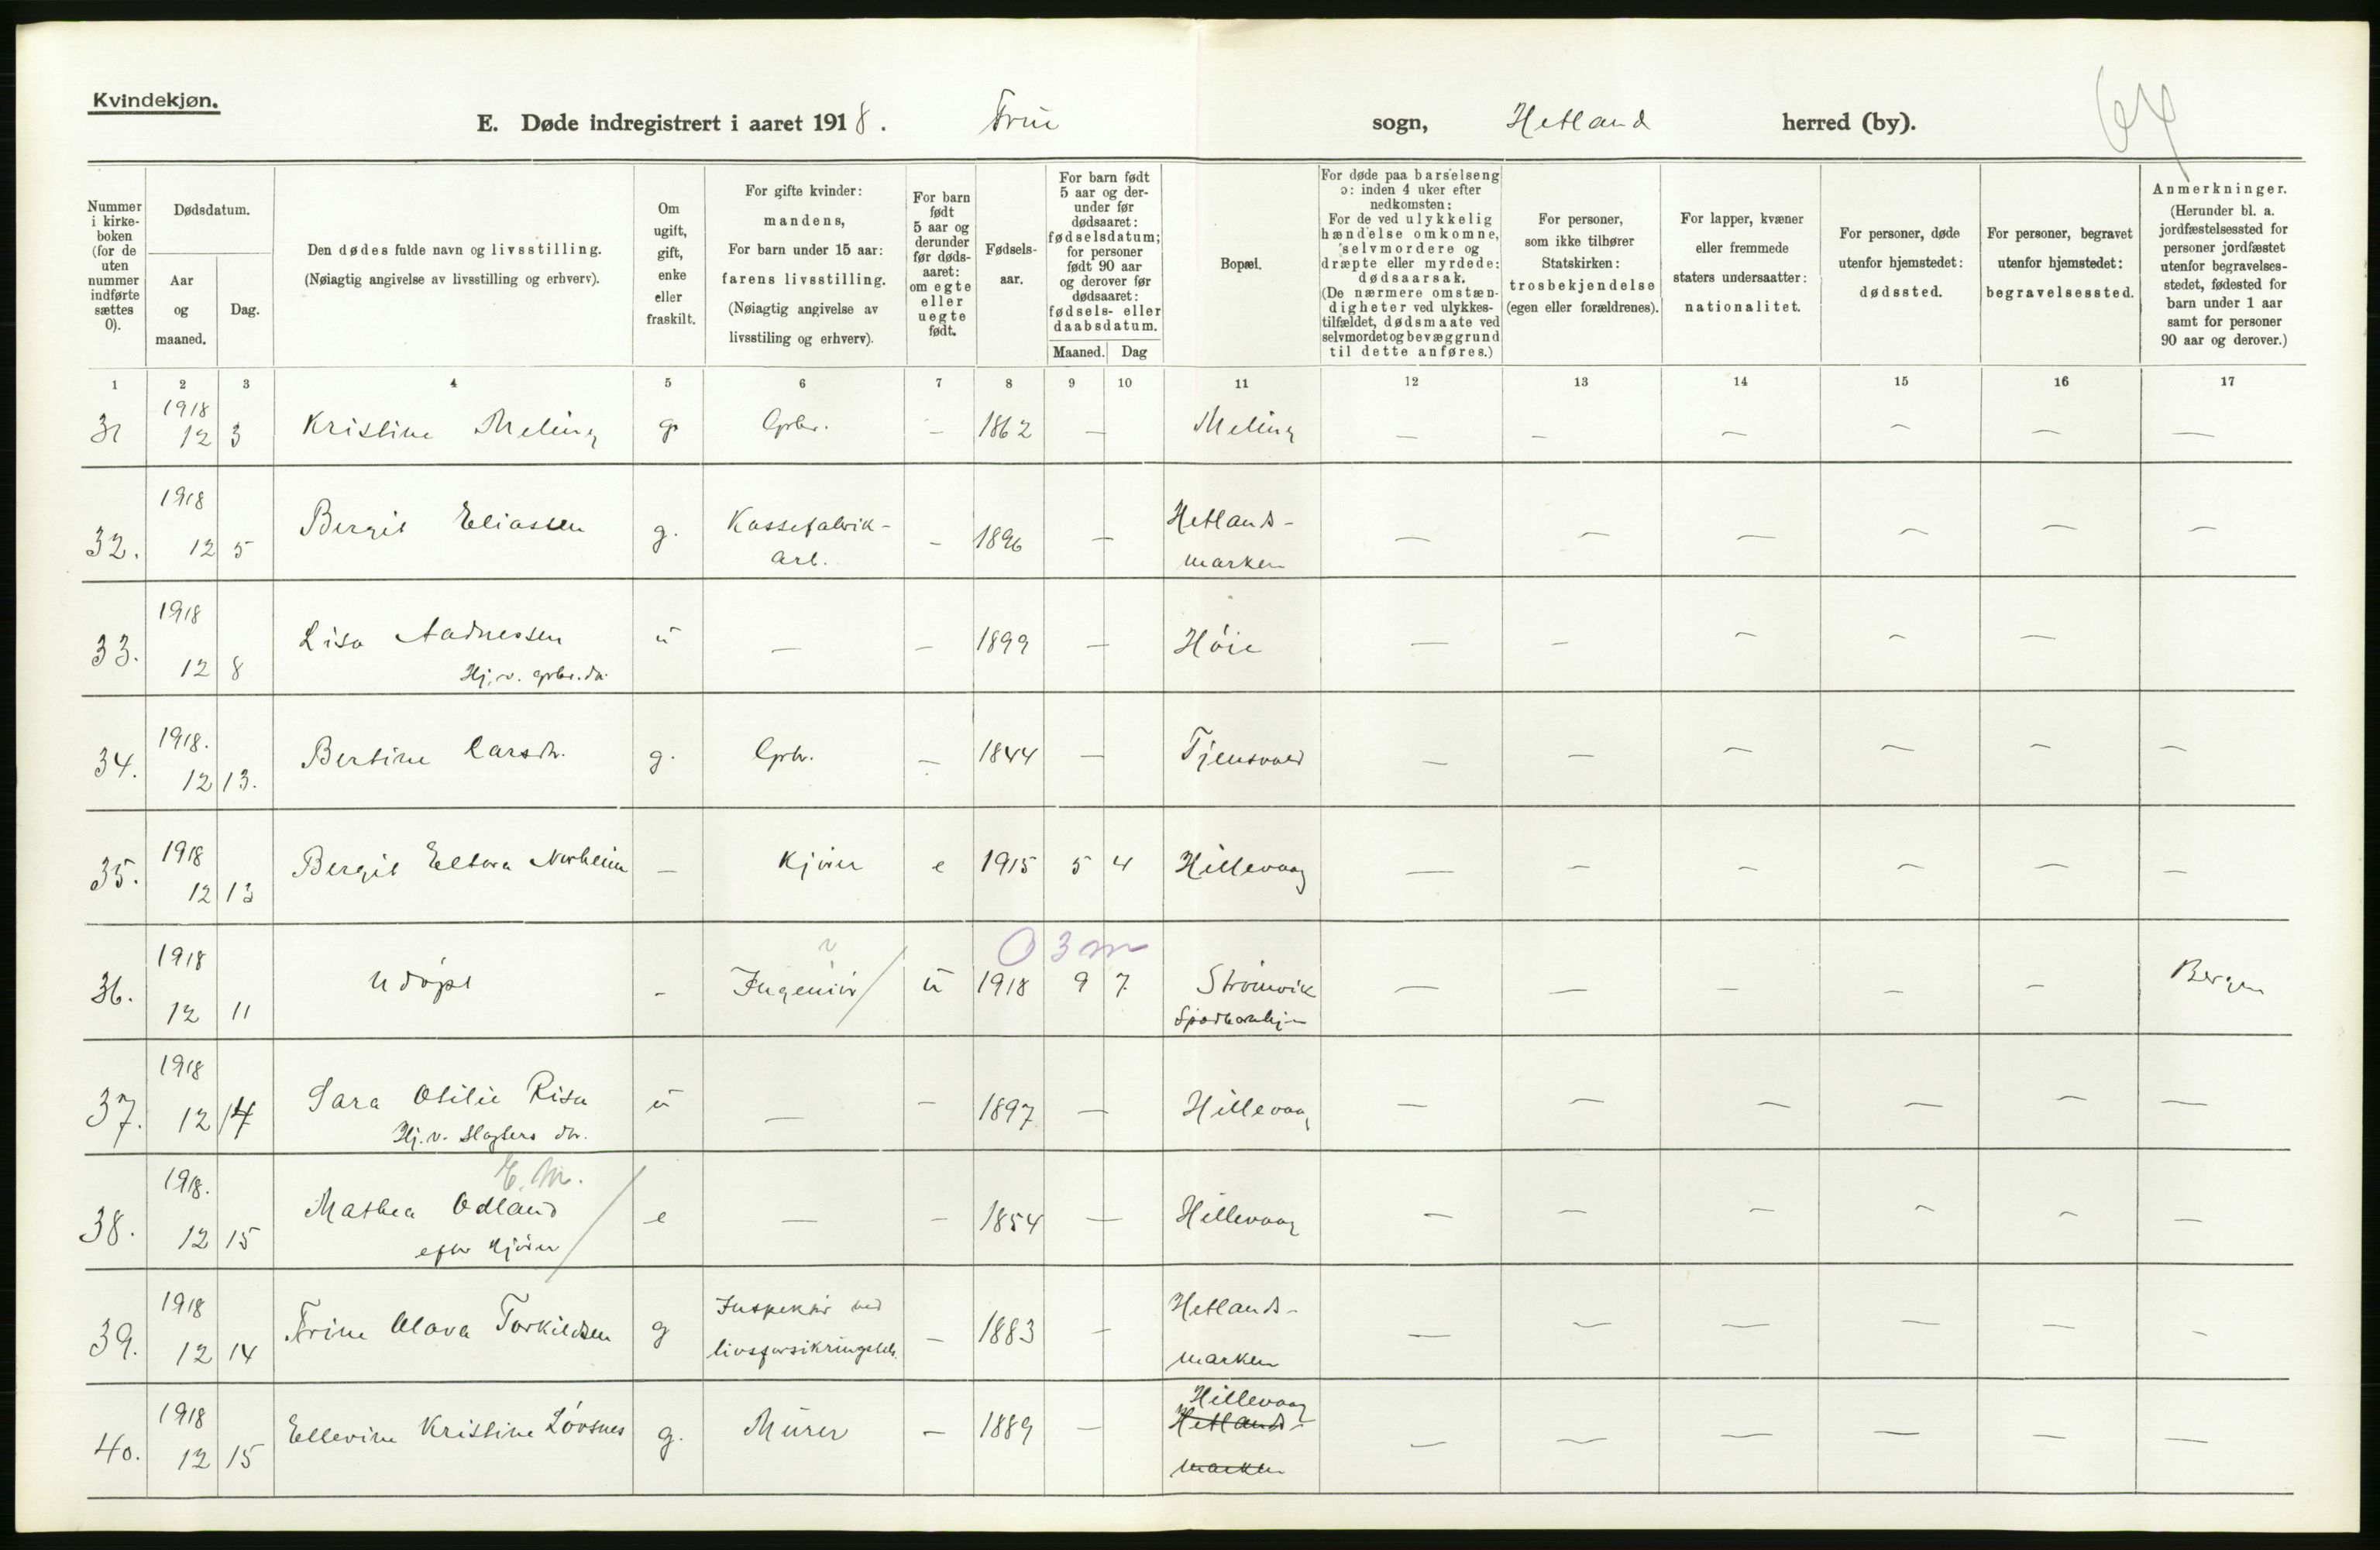 Kvindekjøn.
E. Døde indregistrert i aaret 1918. Frue sogn, Hetland herred (by).
67
Nummer i kirke-boken (for de uten nummer indførte sættes 0).
Dødsdatum.
Aar og maaned.
Dag.
Den dødes fulde navn og livsstilling.
(Nøiagtig angivelse av livsstilling og erhverv).
Om ugift, gift, enke eller fraskilt.
For gifte kvinder: mandens,
For barn under 15 aar: farens livsstilling.
(Nøiagtig angivelse av livsstiling og erhverv).
For barn født 5 aar og derunder før døds-aaret: om egte eller uegte født.
Fødsels-aar.
For barn født 5 aar og der-under før dødsaaret: fødselsdatum; for personer født 90 aar og derover før dødsaaret: fødsels- eller daabsdatum.
Maaned. Dag
Bopæl.
For døde paa barselseng ɔ: inden 4 uker efter nedkomsten:
For de ved ulykkelig hændelse omkomne, selvmordere og dræpte eller myrdede: dødsaarsak.
(De nærmere omstæn-digheter ved ulykkes-tilfældet, dødsmaate ved selvmordet og bevæggrund til dette anføres.)
For personer, som ikke tilhører Statskirken: trosbekjendelse (egen eller forældrenes).
For lapper, kvæner eller fremmede staters undersaatter: nationalitet.
For personer, døde utenfor hjemstedet: dødssted.
For personer, begravet utenfor hjemstedet: begravelsessted.
Anmerkninger.
(Herunder bl. a. jordfæstelsessted for personer jordfæstet utenfor begravelses-stedet, fødested for barn under 1 aar samt for personer 90 aar og derover.)
1 2 3 4 5 6 7 8 9 10 11 12 13 14 15 16 17
31 1918 12 3 Kristine Meling g. Grbr. — 1862 — Meling — — — — — —
32. 1918 12 5 Bergit Eliassen g. Kassefabrik-arb. — 1896 — Hetlands-marken — — — — — —
33. 1918 12 8 Lisa Aadnessen u — — 1899 — Höie — — — — —
Hj. v. grbr. da.
34. 1918. 12 13. Bertine Larsdtr. g. Grbr. — 1844 — Tjensvold — — — — — —
35. 1918 12 13 Bergit Eltora Norheim — Kjörer e 1915 5 4 Hillevaag — — — — — —
O 3 m
36. 1918 12 11 Udöpt — Ingeniör u 1918 9 7 Strömvik — — — — — Bergen
37. 1918 12 14 Sara Otilie Risa u — — 1897 — Hillevaag — — — — — —
Hj. v. slagters dtr.
E. M.
38. 1918. 12 15 Mathea Odland e — — 1854 — Hillevaag — — — — — —
eftr kjörer
39. 1918 12 14 Trine Olava Torkildsen g Inspektör ved — 1883 — Hetlands-marken — — — — — —
40. 1918 12 15 Ellevine Kristine Lövsnes g. Murer — 1889 — Hillevaag — — — — — —
Hetlands-
marken